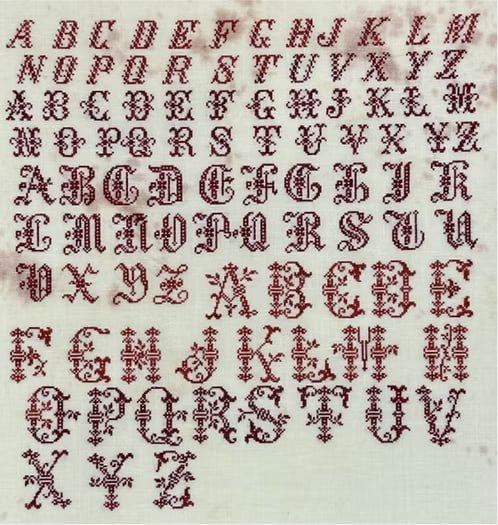 A B C D E F G H J K L M
N O P Q R S T U V X Y Z
A B C D E F G H J K L M
N O P Q R S T U V X Y Z
A B C D E F G H I K
L M N O P Q R S T U
V X Y Z A B C D E
F G H J K L M N
O P Q R S T U V
X Y Z